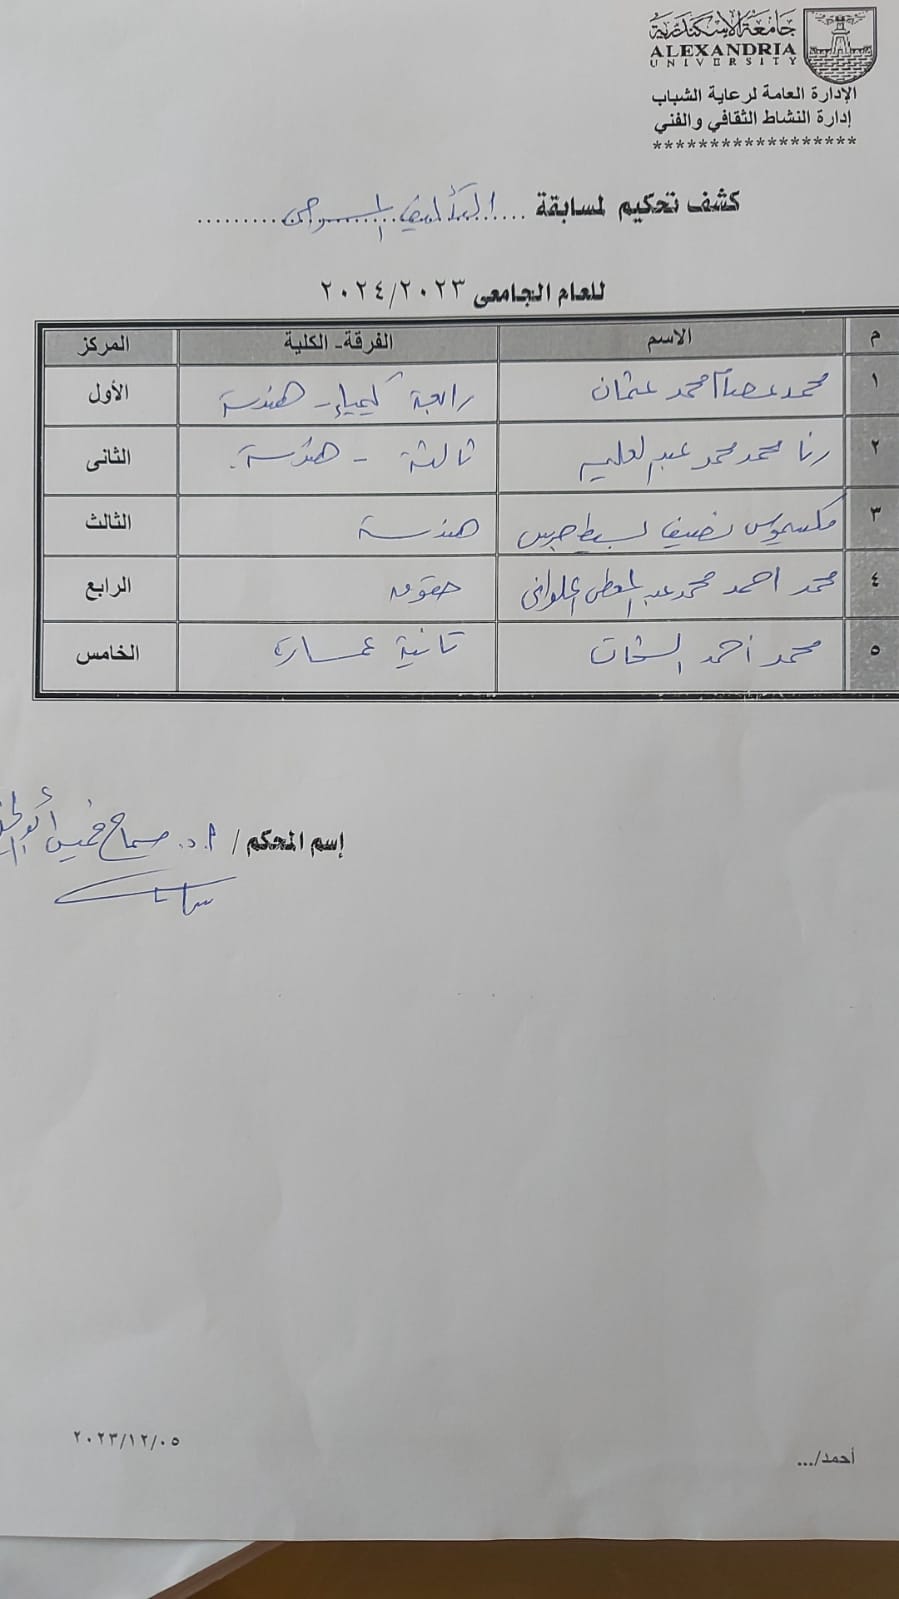 جامعة الإسكندرية
ALEXANDRIA
UNIVERSITY
الإدارة العامة لرعاية الشباب
إدارة النشاط الثقافي والفني
******************
كشف تحكيم لمسابقة ....التأليف المسرحى..........
للعام الجامعى ٢٠٢٤/٢٠٢٣
م الاسم الفرقة- الكلية المركز
١ محمد عصام محمد عثمان رابعة كيمياء - هندسة الأول
٢ رنا محمد محمد عبد العليم ثالثة - هندسة. الثانى
٣ مكسيموس نصيف بسيط جرس هندسة الثالث
٤ محمد احمد محمد عبد المعطى العلوانى حقوق الرابع
٥ محمد أحمد الشحات ثانية عمارة الخامس
إسم المحكم / ا.د. سماح خميس أبو
٢٠٢٣/١٢/٠٥
أحمد/...